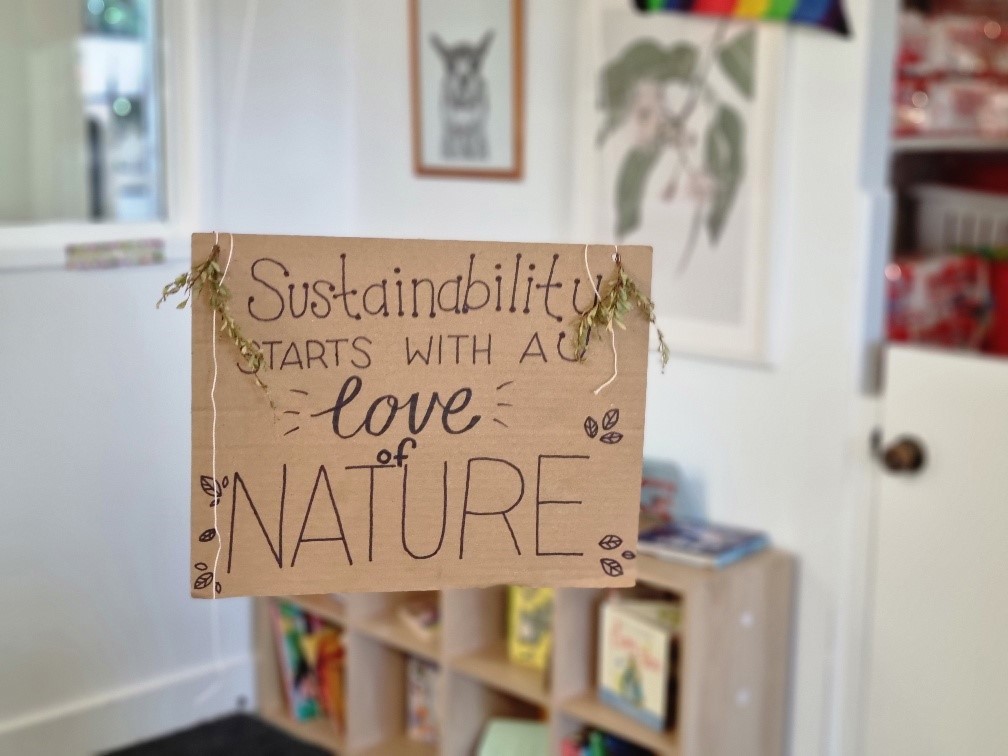 Sustainability
STARTS WITH A
love
of
NATURE